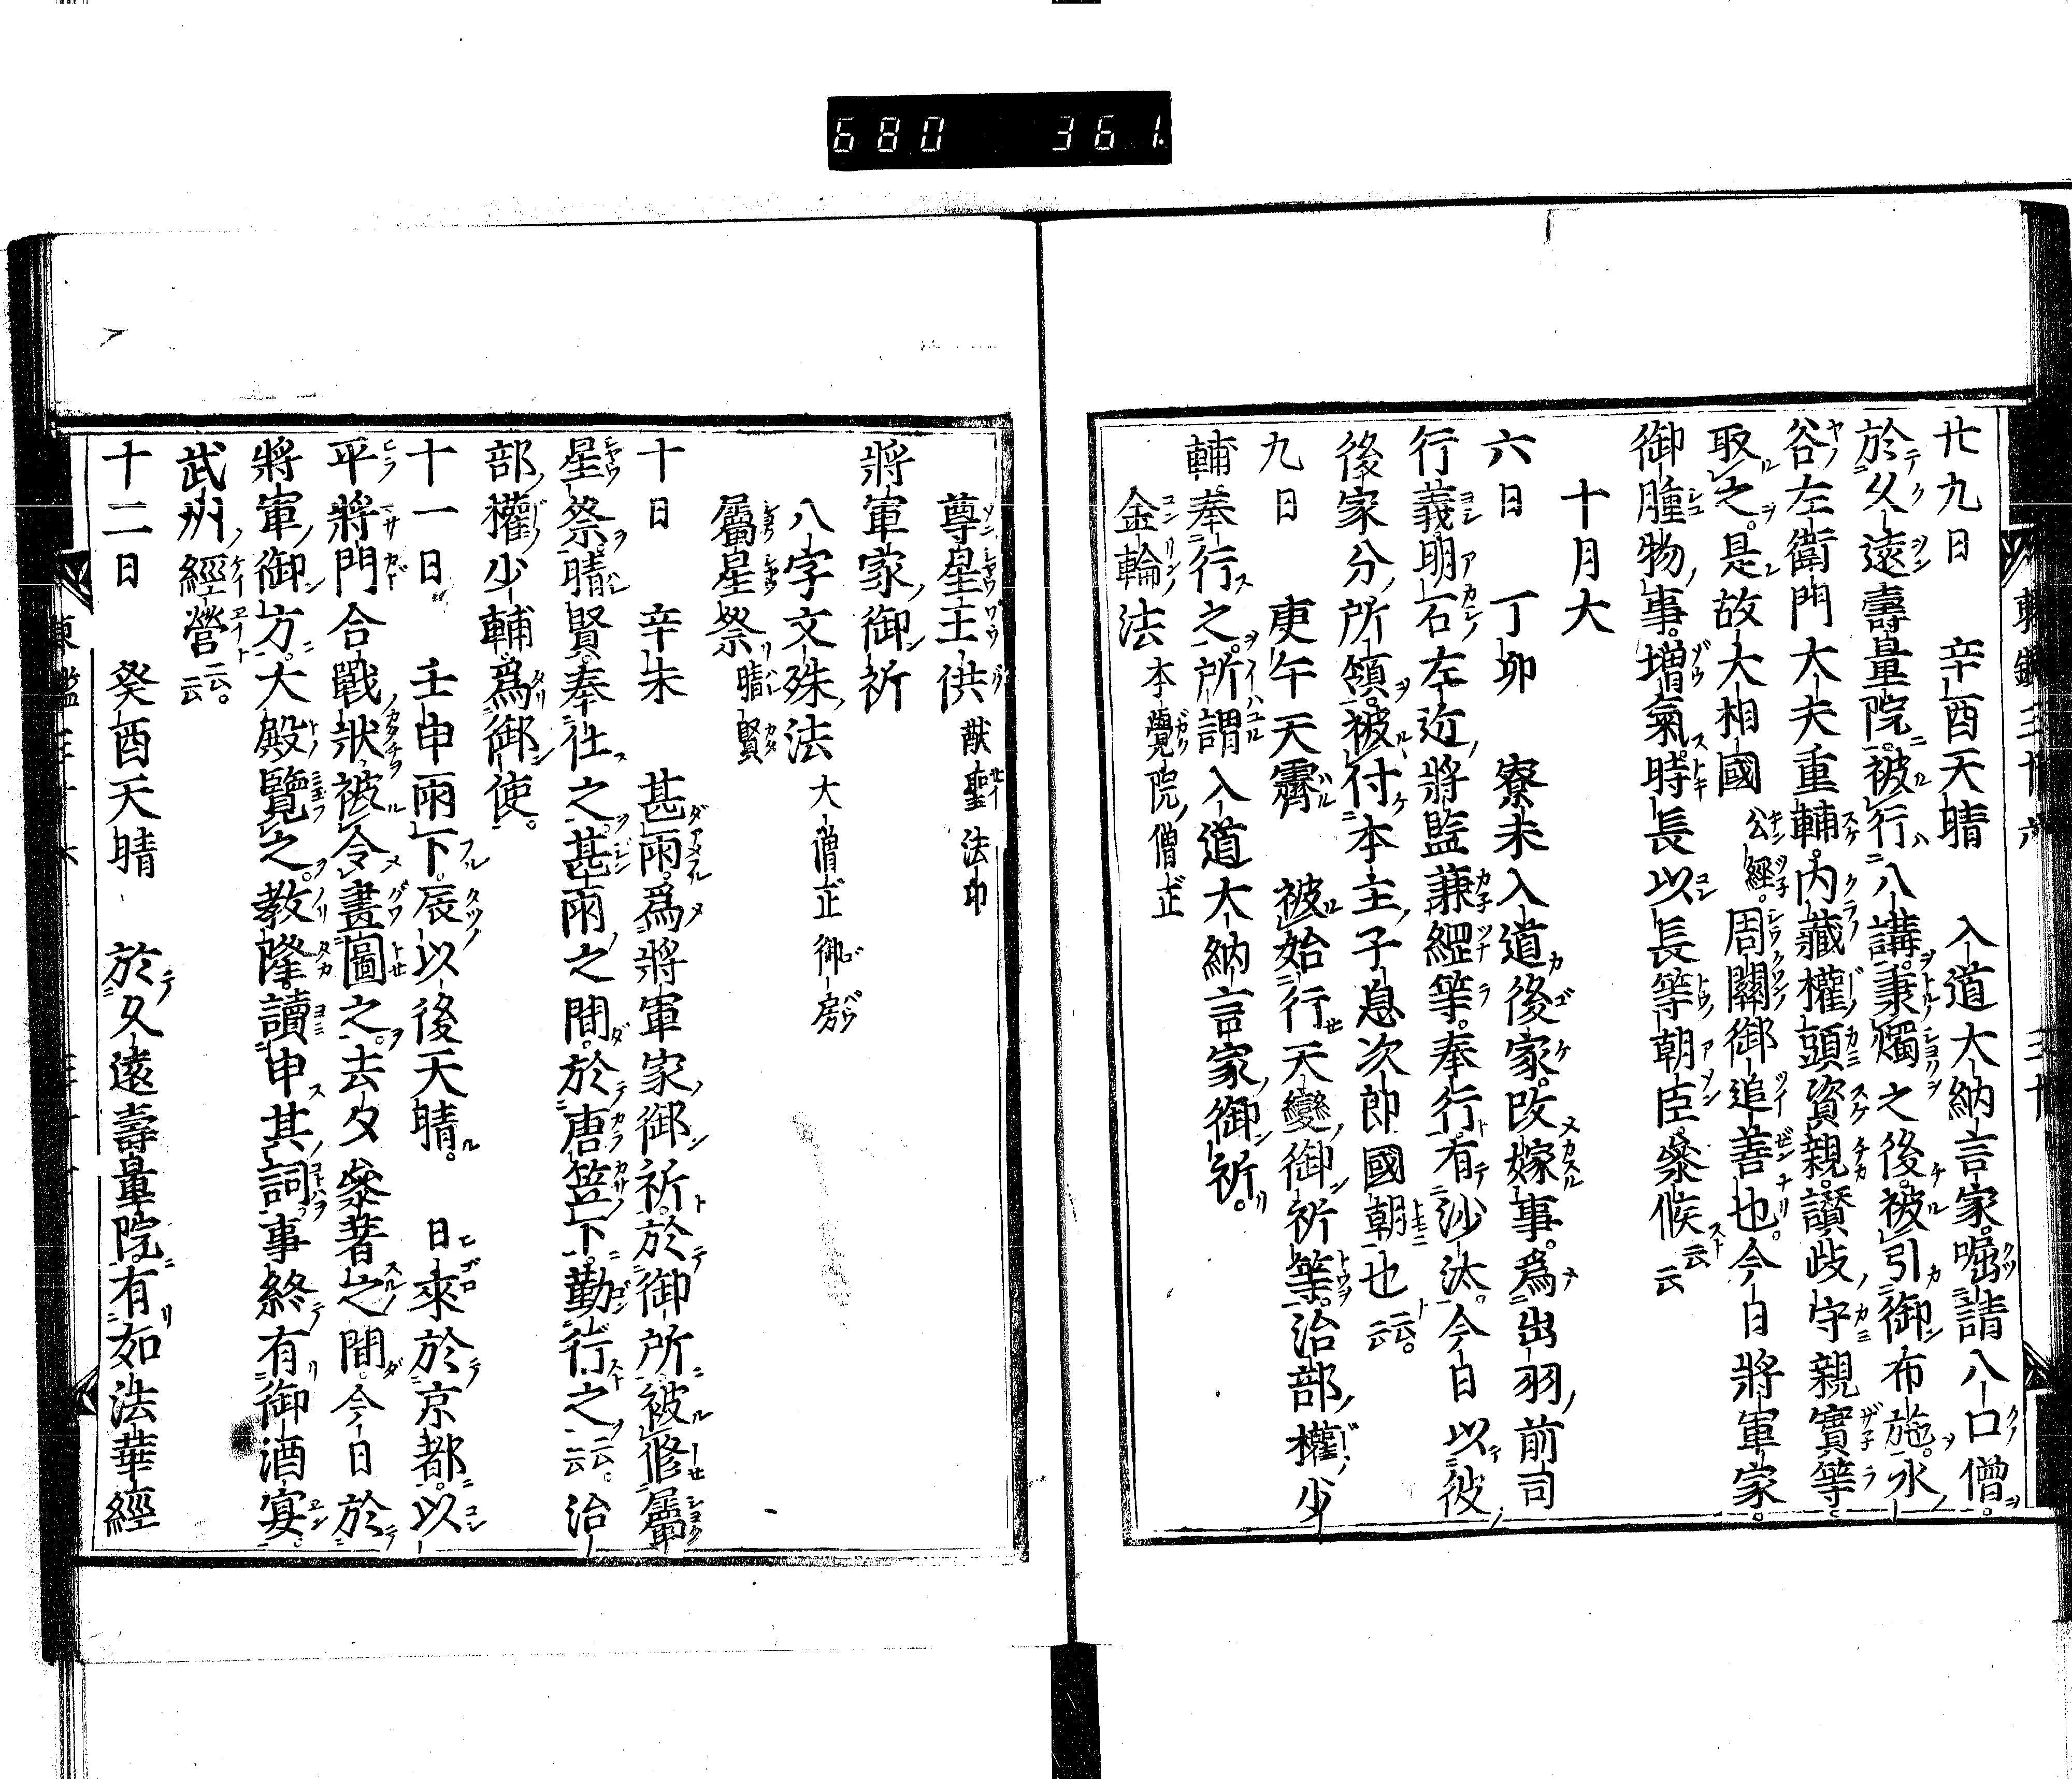 680 361.
廿九日 辛酉天晴 入道大納言家。啒請八口僧。
於久遠壽量院。被行八講。秉燭之後。被引御布施。水
谷左衛門大夫重輔。内藏權頭資親。讃岐守親實等
取之。是故大相國公經。周闋御追善也。今日將軍家。
御腫物事。増氣。時長以長等朝臣。參候云云
十月大
六日 丁卯 寮米入道後家。改嫁事。爲出羽前司
行義。明石左近將監兼綱等。奉行有沙汰。今日以彼
後家分所領。被付本主子息次郎國朝也云云。
九日 庚午天霽 被始行天變御祈等。治部權少
輔。奉行之。所謂入道大納言家御祈。
金輪法 本覺院僧正
尊星王供 猷聖法印
將軍家御祈
八字文殊法 大僧正御房
屬星祭 晴賢
十日 辛未 甚雨。爲將軍家御祈。於御所被修屬
星祭。晴賢。奉仕之。甚雨之間。於唐笠下。勤行之云云。治
部權少輔。爲御使。
十一日 壬申雨下。辰以後天晴。 日來於京都。以
平將門合戰狀。被令畫圖之。去夕參著之間。今日於
將軍御方。大殿覽之。教隆。讀申其詞。事終有御酒宴。
武州經營云云。
十二日 癸酉天晴 於久遠壽量院。有如法華經